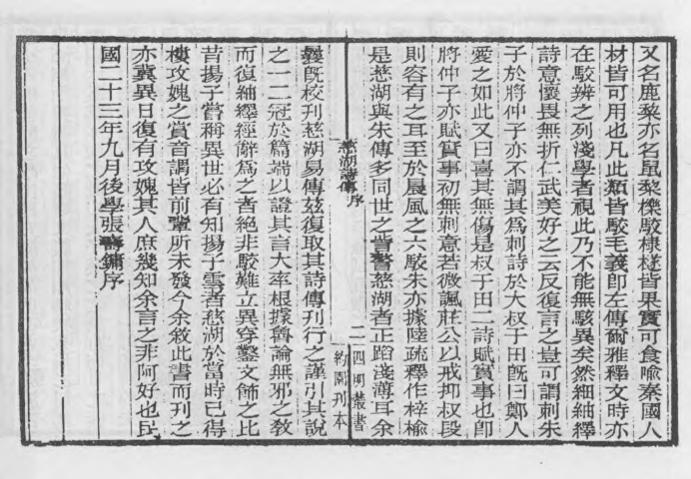 又名鹿棃亦名鼠棃櫟駮棣檖皆果實可食喩秦國人
材皆可用也凡此類皆駮毛義卽左傳爾雅釋文時亦
在駮辨之列淺學者視此乃不能無駭異矣然細紬繹
詩意懷畏無折仁武美好之云反復言之豈可謂刺朱
子於將仲子亦不謂其爲刺詩於大叔于田旣曰鄭人
愛之如此又曰喜其無傷是叔于田二詩賦實事也卽
將仲子亦賦實事初無刺意若微諷莊公以戒抑叔段
則容有之耳至於晨風之六駮朱亦據陸疏釋作梓楡
是慈湖與朱傳多同世之訾謷慈湖者正蹈淺薄耳余
慈湖詩傳 序
二 四明叢書
約園刊本
曩旣校刊慈湖易傳茲復取其詩傳刊行之謹引其說
之一二冠於篇端以證其言大率根據魯論無邪之敎
而復紬繹經解爲之者絕非駮難立異穿鑿文飾之比
昔揚子嘗稱異世必有知揚子雲者慈湖於當時已得
樓攻媿之賞音謂皆前輩所未發今余敘此書而刊之
亦冀異日復有攻媿其人庶幾知余言之非阿好也民
國二十三年九月後學張壽鏞序